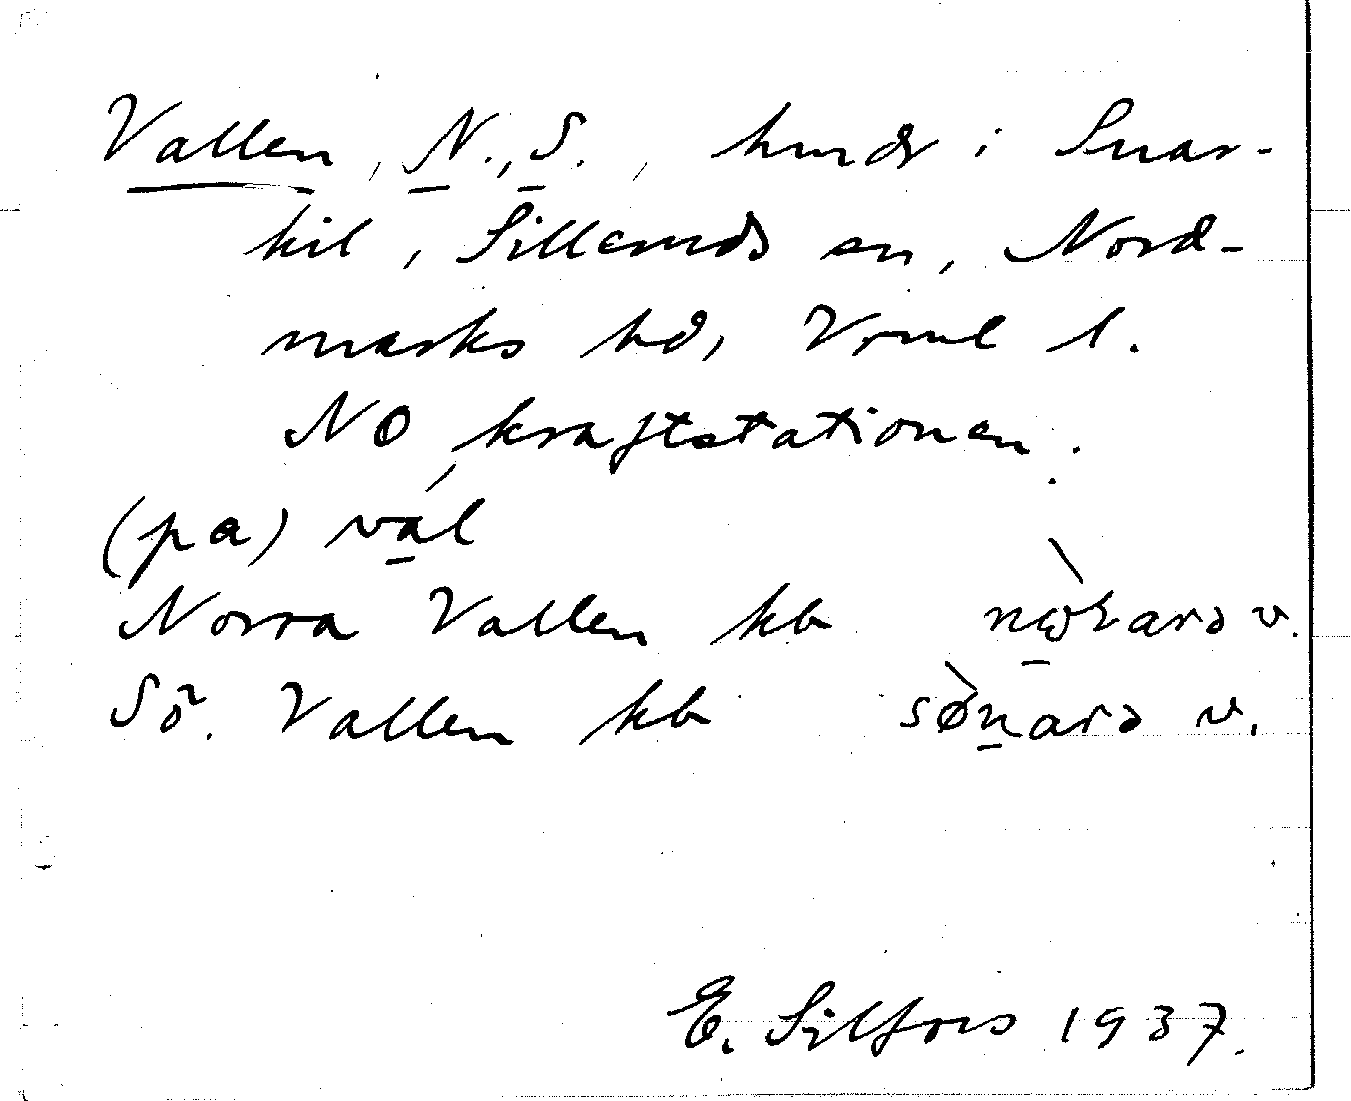 Vallen, N., S., hmdr i Snar-
kil, Silleruds sn, Nord-
marks hd, Vrml l.
NO kraftstationen.
(pa) val
Norra Vallen kb v.
Sö. Vallen kb v.
E. Silfors 1937.